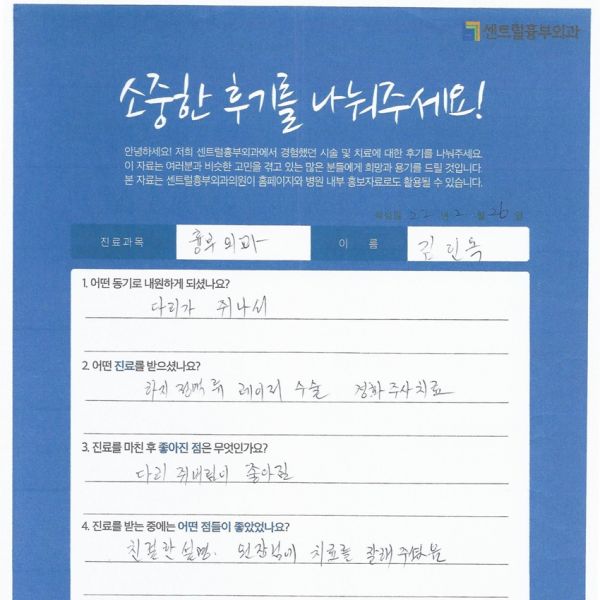 센트럴흉부외과
소중한 후기를 나눠주세요!
안녕하세요! 저희 센트럴흉부외과에서 경험했던 시술 및 치료에 대한 후기를 나눠주세요
이 자료는 여러분과 비슷한 고민을 겪고 있는 많은 분들에게 희망과 용기를 드릴 것입니다.
본 자료는 센트럴흉부외과의원이 홈페이지와 병원 내부 홍보자료로도 활용될 수 있습니다.
22 년 2 월 26 일
진료과목 흉부외과 이 름 김인옥
1. 어떤 동기로 내원하게 되셨나요?
다리가 쥐나서
2. 어떤 진료를 받으셨나요?
하지정맥류 레이저 수술 경화주사치료
3. 진료를 마친 후 좋아진 점은 무엇인가요?
다리 쥐내림이 좋아짐
4. 진료를 받는 중에는 어떤 점들이 좋았었나요?
친절한 설명. 원장님이 치료를 잘해주셨음